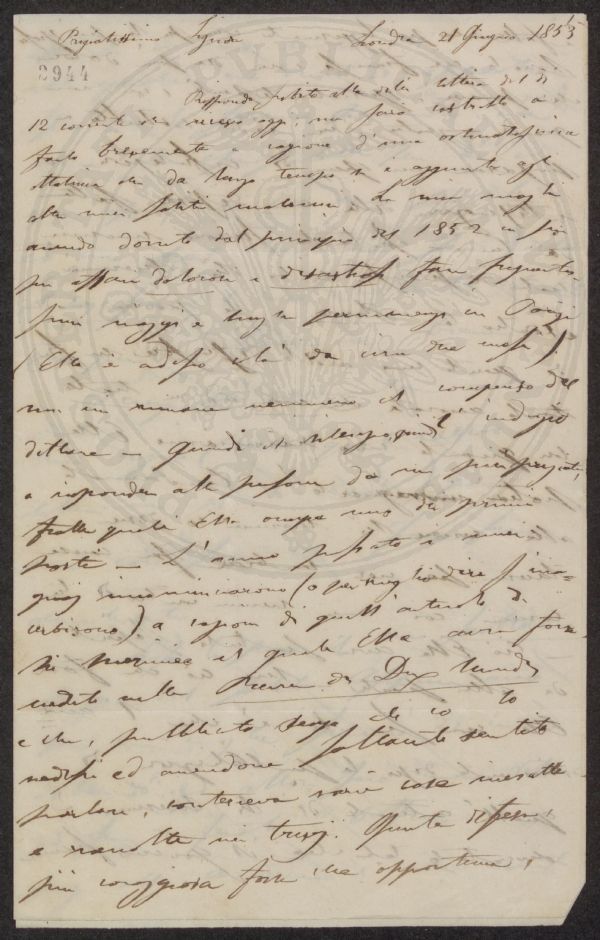 Pregiatissimo Signore Londra 21 Giugno 1853
2944
Rispondo subito alla di lei lettera del dì
12 corrente che ricevo oggi; ma sono costretto a
farlo brevemente a cagione d'una ostinatissima
che da lungo tempo si è aggiunta agli
altri miei soliti malanni. La mia moglie
avendo dovuto dal principio del 1852 in poi
per affari dolorosi e disastrosi fare frequentis-
simi viaggi e lunghe permanenze in Parigi
(Ella è adesso colà da circa due mesi),
non mi rimane nemmeno il compenso del
dettare — Quindi il l'indugio
a rispondere alle persone da me più pregiate,
fralle quali Ella occupa uno dei primi
posti — L'anno passato i miei
guai incominciarono (o per meglio dire s'ina-
cerbirono) a cagione di quell'articolo di
il quale Ella avrà
veduto nella Revue des Deux Mondes
e che, pubblicato senza che io lo
vedessi ed avendone soltanto sentito
parlare, conteneva varie cose inesatte
e Questa difesa,
più coraggiosa forse che opportuna,